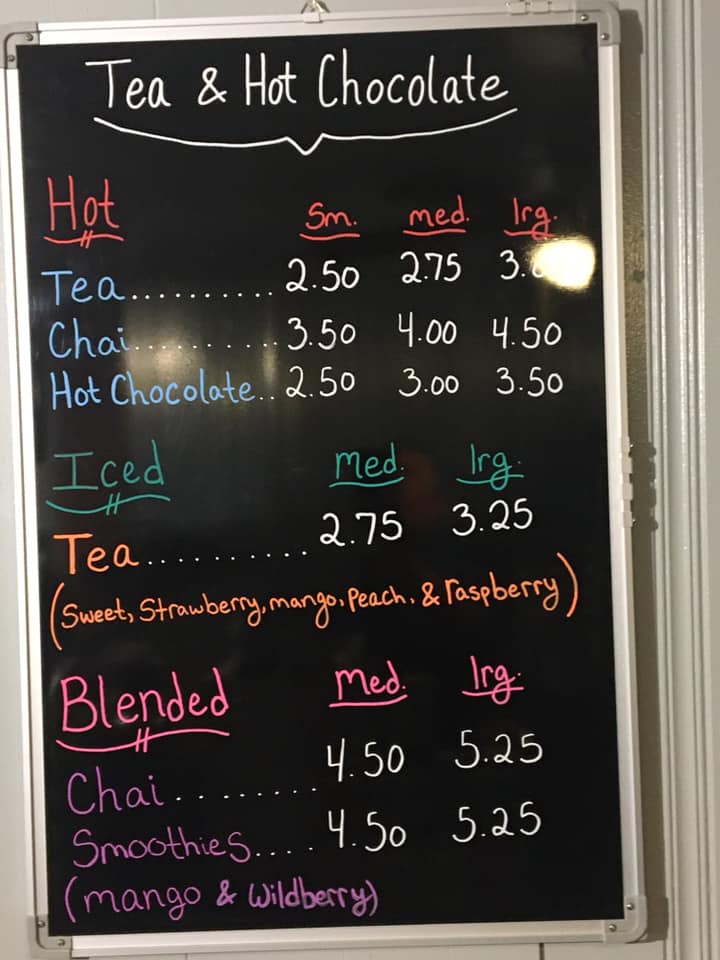 Tea & Hot Chocolate
Hot Sm. med. lrg.
Tea.......... 2.50 2.75
Chai.......... 3.50 4.00 4.50
Hot Chocolate.. 2.50 3.00 3.50
Iced med. lrg.
Tea........... 2.75 3.25
(Sweet, Strawberry, mango, Peach, & raspberry)
Blended med. lrg.
Chai........ 4.50 5.25
Smoothies.... 4.50 5.25
(mango & Wildberry)